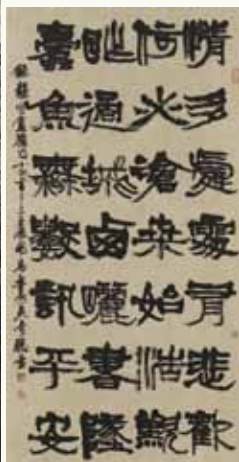 情多處處有悲歡
何必滄桑始浩歎
昨過城西曬書墬
蠹魚無數訊平安